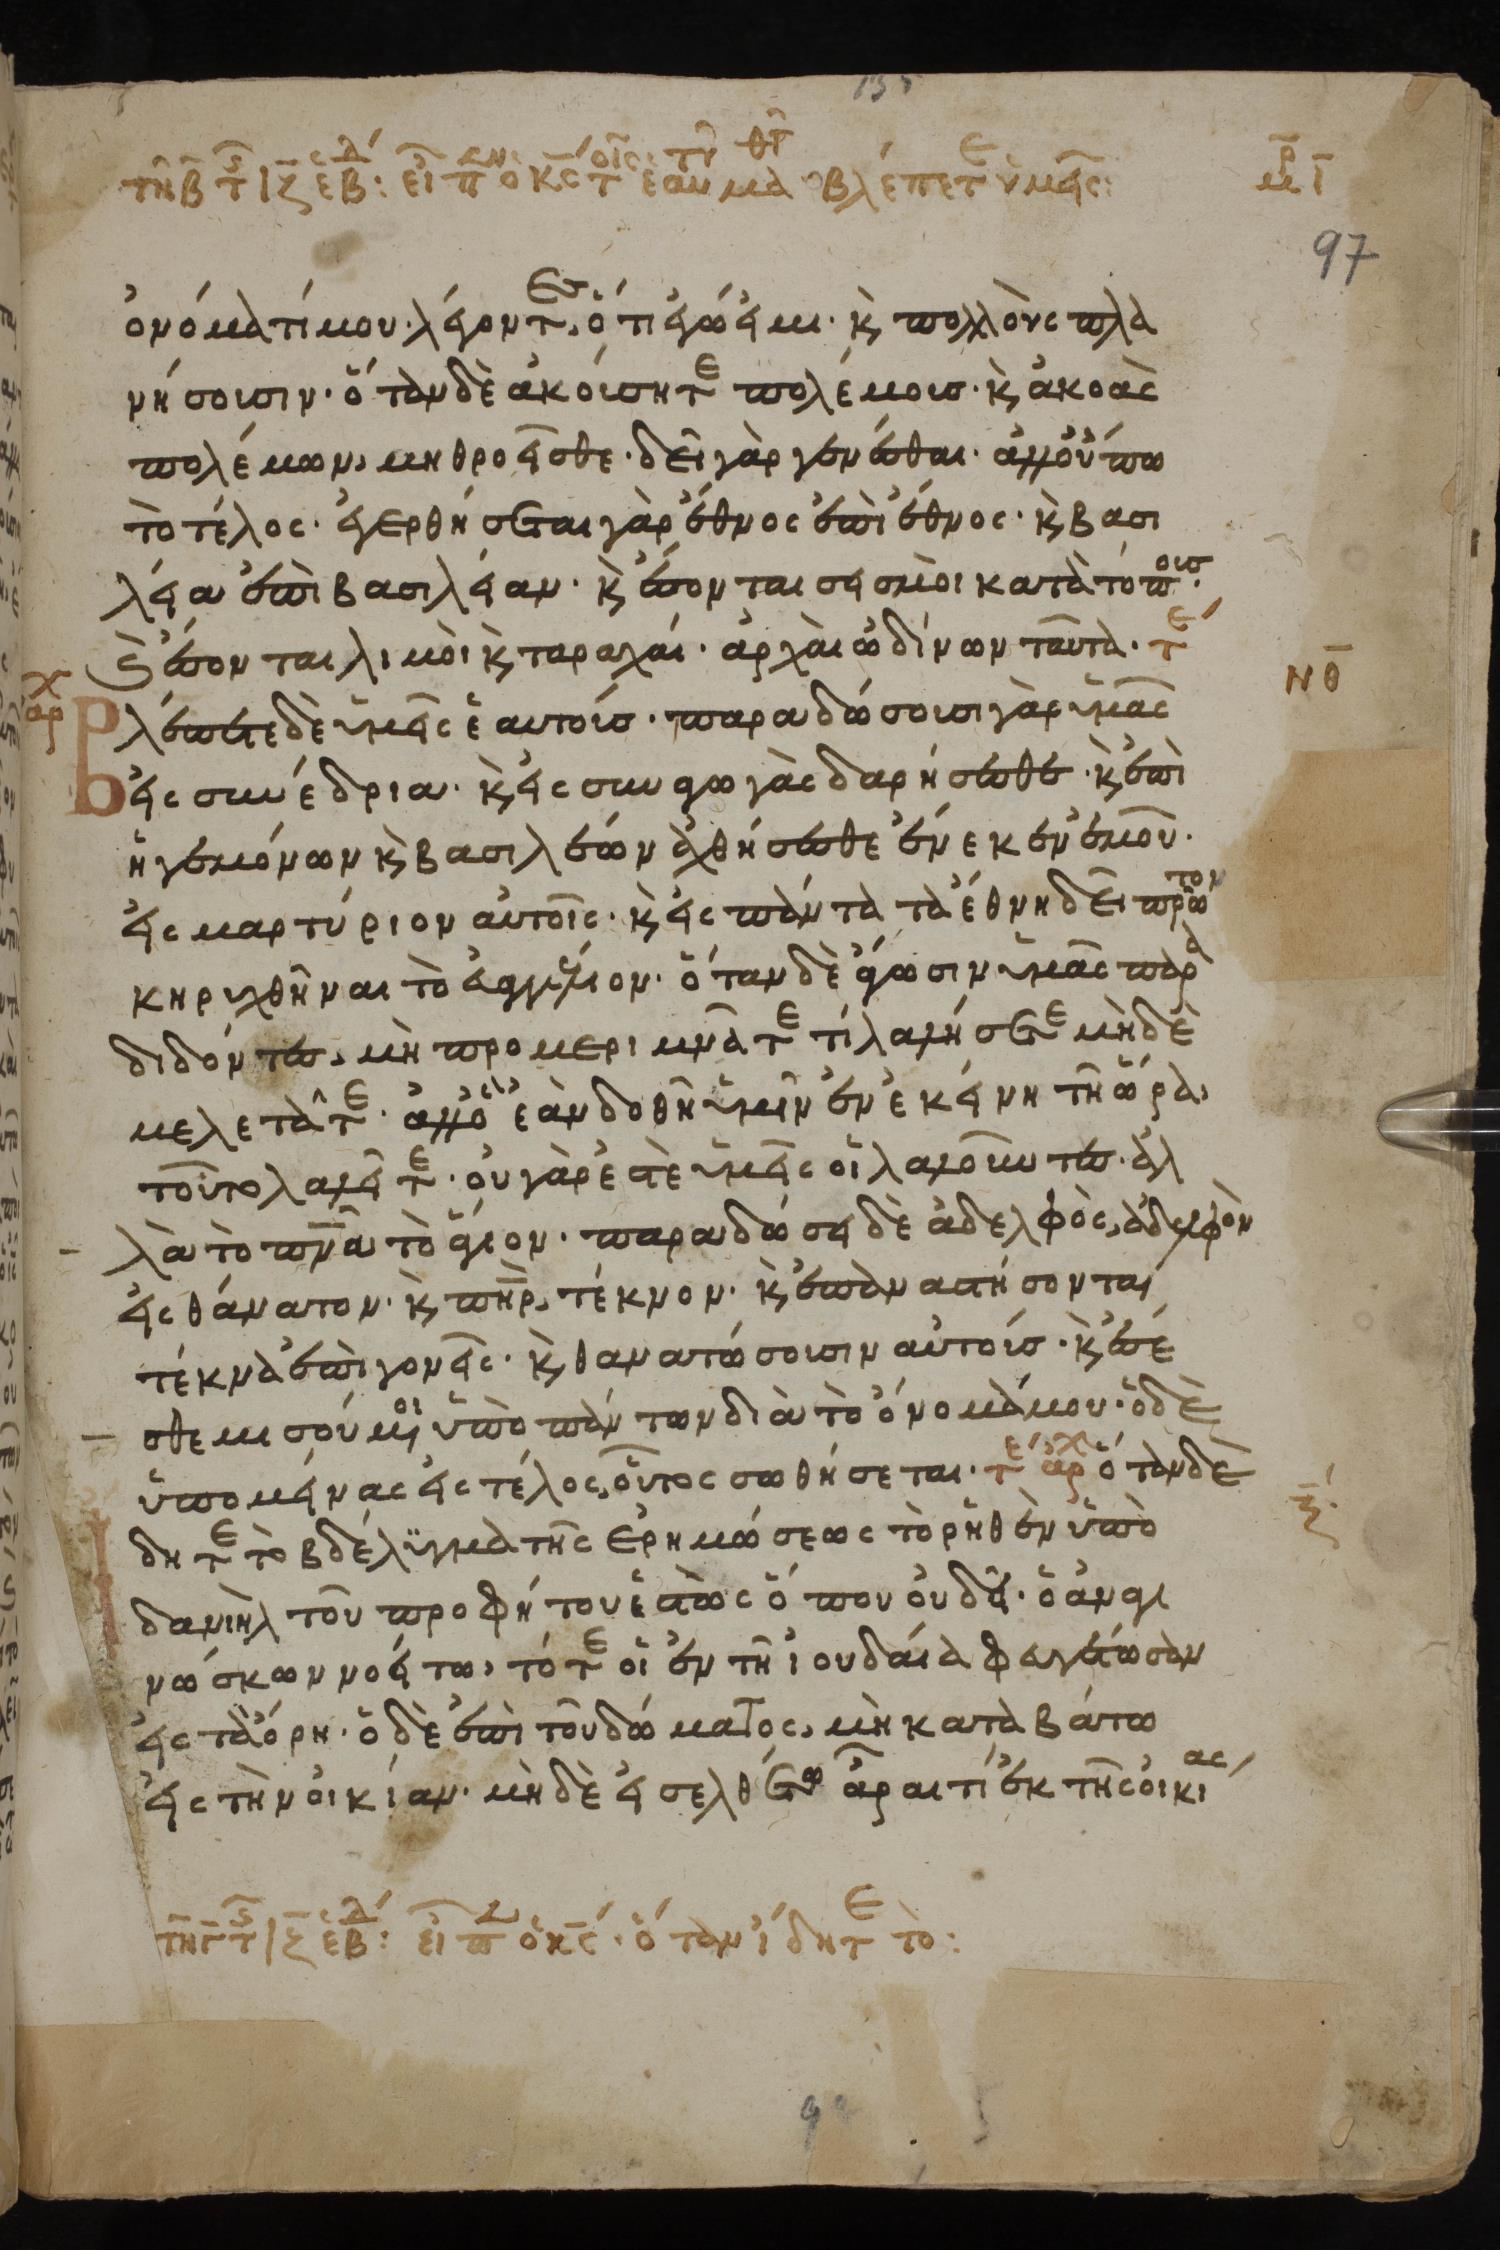 97
ὀνόματί μου· λέγοντες, ὅτι ἐγώ εἰμι· κ̀ πολλοὺς πλα
νήσουσιν· ὅταν δὲ ἀκούσητε πολέμους· κ̀ ἀκοὰς
πολέμων, μὴ θροεῖσθε· δεῖ γὰρ γενέσθαι· ἀλλ' οὔπω
τὸ τέλος· ἐγερθήσεται γὰρ ἔθνος ἐπὶ ἔθνος· κ̀ βασι
λεία ἐπὶ βασιλείαν· κ̀ ἔσονται σεισμοὶ κατὰ τόπους·
κ̀ ἔσονται λιμοὶ κ̀ ταραχαί· ἀρχαὶ ὠδίνων ταῦτα· τε
ΝΘ
αρχ
Βλέπετε δὲ ὑμεῖς ἑαυτούς· παραδώσουσι γὰρ ὑμᾶς
εἰς συνέδρια· κ̀ εἰς συναγωγὰς δαρήσεσθε· κ̀ ἐπὶ
ἡγεμόνων κ̀ βασιλέων ἀχθήσεσθε ἕνεκεν ἐμοῦ·
εἰς μαρτύριον αὐτοῖς· κ̀ εἰς πάντα τὰ ἔθνη δεῖ πρῶτον
κηρυχθῆναι τὸ εὐαγγέλιον· ὅταν δὲ ἄγωσιν ὑμᾶς παρα
διδόντες, μὴ προμεριμνᾶτε τί λαλήσετε μὴ δὲ
μελετᾶτε· ἀλλ' ὃ ἐὰν δοθῇ ὑμῖν ἐν ἐκείνῃ τῇ ὥρα,
τοῦτο λαλεῖτε· οὐ γάρ ἐστε ὑμεῖς οἱ λαλοῦντες· ἀλ
λὰ τὸ πνᾶ τὸ ἅγιον· παραδώσει δὲ ἀδελφὸς, ἀδελφὸν
εἰς θάνατον· κ̀ πηρ, τέκνον· κ̀ ἐπαναστήσονται
τέκνα ἐπὶ γονεῖς· κ̀ θανατώσουσιν αὐτούς· κ̀ ἔσε
σθε μισούμενοι ὑπὸ πάντων διὰ τὸ ὄνομά μου· ὁ δὲ
ὑπομείνας εἰς τέλος, οὗτος σωθήσεται· τε αρχ ὅταν δὲ
ἴδητε τὸ βδέλυγμα τῆς ἐρημώσεως τὸ ῥηθὲν ὑπὸ
δανιὴλ τοῦ προφήτου ἑστὼς ὅπου οὐ δεῖ· ὁ ἀναγι
νώσκων νοείτω, τότε οἱ ἐν τῇ ἰουδαία φευγέτωσαν
εἰς τὰ ὄρη· ὁ δὲ ἐπὶ τοῦ δώματος, μὴ καταβάτω
εἰς τὴν οἰκίαν· μὴ δὲ εἰσελθέτω ἆραί τι ἐκ τῆς οἰκίας